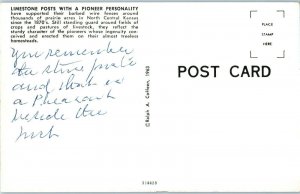 LIMESTONE POSTS WITH A PIONEER PERSONALITY
have supported their barbed wire fences around
thousands of prairie acres in North Central Kansas
since the 1870's. Still standing guard around fields of
crops and pastures of livestock, they reflect the
sturdy character of the pioneers whose ingenuity con-
ceived and erected them on their almost treeless
homesteads.
You remember
the stone posts
and that is
a Pheasant
beside the
PLACE
STAMP
HERE
POST CARD
©Ralph A. Cathon, 1963